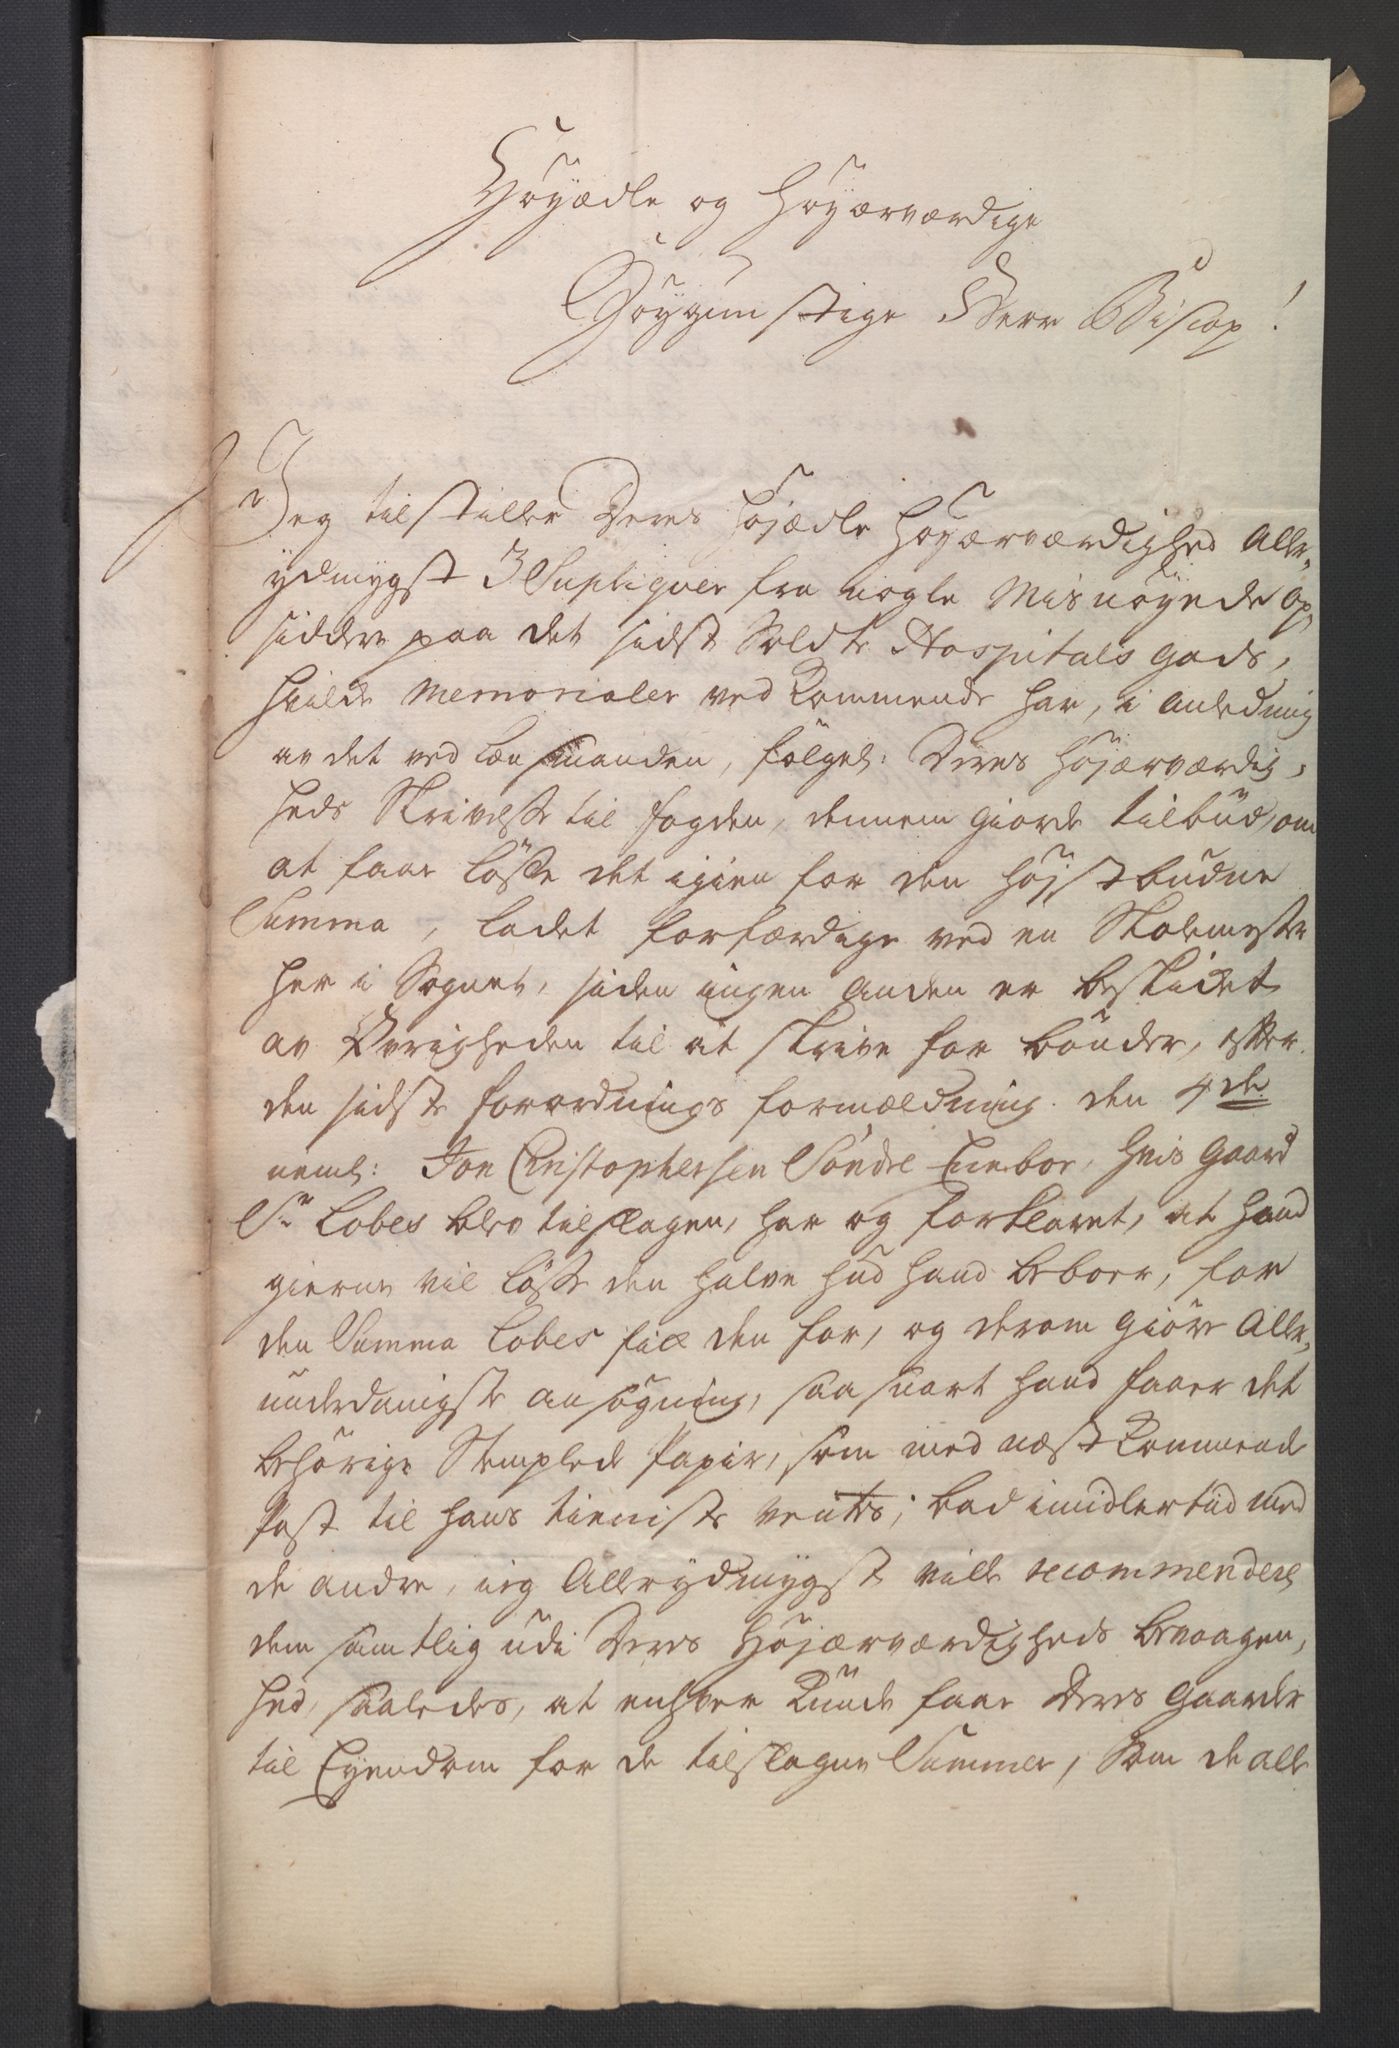 Høyædle og Høyærværdige
Høygunstige Herr Biscop!
Jeg tilstiller Deres Højædle Høyærværdighed Aller-
ydmygst 3 Supliqver fra nogle Misnøyede Op-
siddere paa det sidst Soldte Hospitals gods,
hvilke Memorialer ved Kommende har, i anledning
av det ved Lænsmanden, følgel: Deres Højærværdig-
heds Skrivelse til fogden, dennem giorde tilbud, om
at faae løsse det igien for den højstbudne
Summa, ladet forfærdige ved en Skolemester
her i Sognet, siden ingen anden er beskicket
av Øvrigheden til at skrive for bønder, efter
den sidste forordnings formældning. den 4de
neml: Jon Christophersen Søndre Eneboe, hvis gaard
Sr. Lobes blev tilslagen, har og forklaret, at hand
gierne vil løsse den halve hud hand beboer, for
den Summa Lobes fik den for, og derom giøre Aller-
underdanigste ansøgning, saa snart hand faaer det
behørige Stemplede Papir, som med næst Kommende
Post til hans tieniste ventes; bad imidlertid med
de andre, ieg Allerydmygst ville recommendere
dem samtlig udi Deres Højærværdigheds bevaagen-
hed, saaledes, at enhver kunde faae Deres gaarder
til Eyendom for de tilslagne Summer, som de alle